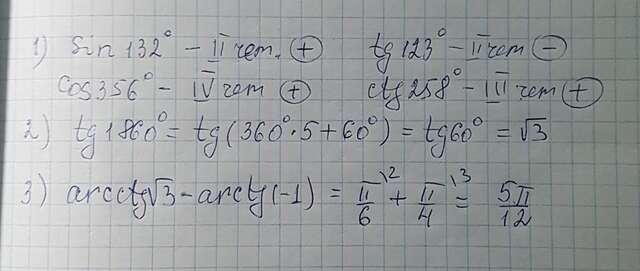 1) sin 132° - II чет. (+) tg 123° - II чет (-)
cos 356° - IV чет (+) ctg 258° - III чет (+)
2) tg 1860° = tg (360°·5 + 60°) = tg 60° = √3
3) arcctg √3 - arctg (-1) = π/6 \2 + π/4 \3 = 5π/12